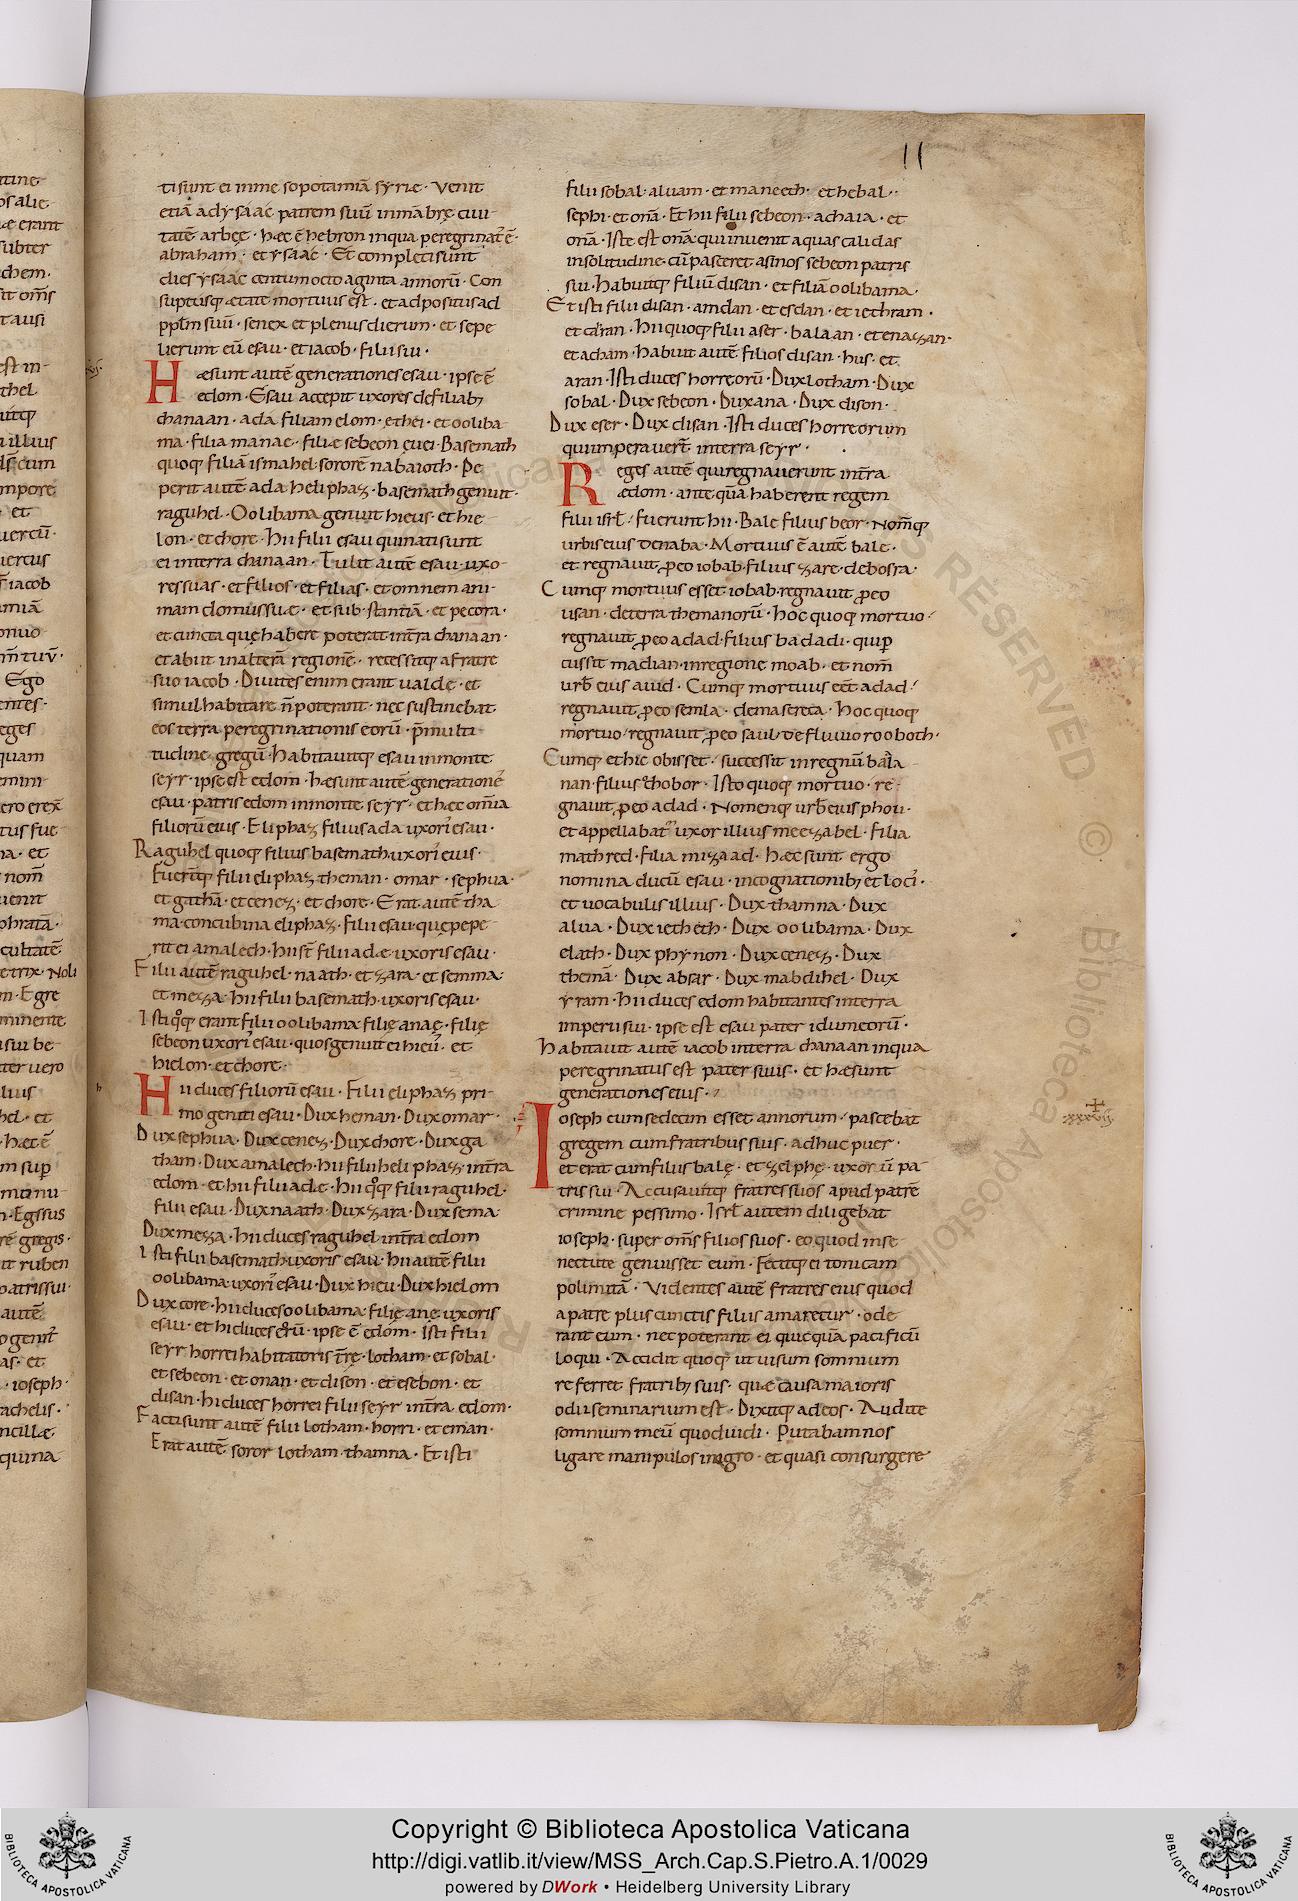 11
tisunt ei inme sopotamiã syriæ · Venit
etiã ad ysáác patrem suũ inmãbrę ciui
tatẽ arbęę · hæc ẽ hebron inqua peregrinat᷑ ẽ ·
abraham · et ysáác · Et completi sunt
dies ysaác centum octo aginta annorũ · Con
suptusq; ætate mortuus est · et adpositus ad
pplm̃ suũ · senex et plenus dierum · et sepe
lierunt eũ esau · et iacob · filii sui ·
Hæsunt autẽ generationes esau · ipse ẽ
edom · Esau accepit uxores de filiab;
chanaan · ada filiam elom · ęthei · et ooliba
ma · filia manae · filiæ sebeon ęuei · Basemath
quoq; filiã ismahel sororẽ nabaioth · Pe
perit autẽ ada heliphaz · basemath genuit ·
raguhel · Oolibama genuit hieus · et hie
lon · et chore · Hii filii esau qui nati sunt
ei interra chanaan · Tulit autẽ esau uxo
res suas · et filios · et filias · et omnem ani
mam domus suæ · et sub stantiã · et pecora ·
et cuncta quę habere poterat intr̃a chanaan ·
et abiit in alterã regionẽ · recessitq; a fratre
suo iacob · Diuites enim erant ualde · et
simul habitare ñ poterant · nec sustinebat
eos terra peregrinationis eorũ · p̃ multi
tudine gregũ · habitauitq; esau in monte
seyr · ipse est edom · hæsunt autẽ generationeś
esau · patris edom inmonte seyr · et hæc omĩa
filiorũ eius · Eliphaz filius ada uxori᷒ esau ·
Raguhel quoq; filius basemath uxori᷒ eius ·
Fuerũtq; filii eliphaz theman · omar · sephua ·
et gathã · et cenez · et chore · Erat autẽ tha
ma concubina eliphaz · filii esau · quę pepe
rit ei amalech · hii st̃ filii adæ uxoris esau ·
Filii autẽ raguhel · naath · et zara · et semma
et mezza · hii filii basemath uxoris esau ·
Isti qͦq; erant filii oolibama filię anaę · filię
sebeon uxori᷒ esau · quos genuit ei hieu᷒ · et
hielon · et chore ·
Hii duces filiorũ esau · Filii eliphaz pri
mogeniti esau · Dux heman · Dux omar ·
Dux sephua · Dux cenez · Dux chore · Dux ga
tham · Dux amalech · hii filii heli phaz intr̃a
edom · et hii filii adæ · hii qͦq; filii raguhel ·
filii esau · Dux naath · Dux zara · Dux sema
Dux mezza · hii duces raguhel intr̃a edom
Isti filii basemath uxoris esau · hii autẽ filii
oolibama uxori᷒ esau · Dux hieu · Dux hielom
Dux core · hii duces oolibama filię anę uxoris
esau · et hi duces eor̃ũ · ipse ẽ edom · Isti filii
seyr horrei habitatoris t̃rę · lotham · et sobal ·
et sebeon · et onan · et dison · et esebon · et
disan · hi duces horrei filii seyr intr̃a edom ·
Facti sunt autẽ filii lotham · horri · et eman ·
Erat autẽ soror lotham · thamna · Et isti
filii sobal · aluam · et maneeth · et hebal ··
sephi · et onã · Et hii filii sebeon · achaia · et
onã · Iste est onã qui inuenit aquas calidas
insolitudine · cũ pasceret asinos sebeon patris
sui · habuitq; filiũ disan · et filiã oolibama ·
Et isti filii disan · amdan · et esdan · et iethram ·
et caran · Hii quoq; filii aser · balaan · et enazzan ·
et acham · habuit autẽ filios disan · hus · et
aran · Isti duces horreorũ · Dux lotham · Dux
sobal · Dux sebeon · Dux ana · Dux dison ·
Dux eser · Dux disan · Isti duces horreorum
qui imperauer̃t interra seyr ·
Reges autẽ qui regnauerunt intr̃a
ædom · ante quã haberent regem
filii isrl̃ · fuerunt hii · Bale filius beor · nom̃q;
urbis eius denaba · Mortuus ẽ autẽ bale ·
et regnauit ꝓ eo iobab · filius zare · debosra ·
Cumq; mortuus esset iobab · regnauit ꝓ eo
usan · deterra themanorũ · hoc quoq; mortuo ·
regnauit ꝓ eo adad · filius badadi · qui p̱
cussit madian · in regione moab · et nom̃
urb᷒ eius auid · Cumq; mortuus eẽt adad ·
regnauit ꝓ eo semla · demasereca · hoc quoq;
mortuo · regnauit ꝓ eo saul · de fluuio rooboth ·
Cumq; et hic obisset · successit inregnũ bala
nan · filius chobor · Isto quoq; mortuo · re
gnauit ꝓ eo adad · Nomenq; urb᷒ eius phou ·
et appellabat᷑ uxor illius meezabel · filia
mathred · filia mizaad · hæc sunt ergo
nomina ducũ esau · incognationib; et loci᷒ ·
et uocabulis illius · Dux thamna · Dux
alua · Dux ietheth · Dux oolibama · Dux
elath · Dux phynon · Dux cenez · Dux
themã · Dux absar · Dux mabdihel · Dux
yram · hii duces edom habitantes interra
imperii sui · ipse est esau pater idumeorũ ·
Habitauit autẽ iacob interra chanaan inqua
peregrinatus est pater suus · et hæsunt
generationes eius ·
Ioseph cum sedecim esset annorum · pascebat
gregem cum fratribus suis · adhuc puer ·
et erat cum filiis balę · et zelphę · uxor ũ pa
tris sui · Accusauitq; fratres suos apud patrẽ
crimine pessimo · Isrl̃ autem diligebat
ioseph · super om̃s filios suos · eo quod inse
nectute genuisset eum · Fecitq; ei tonicam
polimitã · Videntes autẽ fratres eius quod
a patre plus cunctis filiis amaretur · ode
rant eum · nec poterant ei quicquã pacificũ
loqui · Accidit quoq; ut uisum somnium
referret fratrib; suis · quæ causa maioris
odii seminarium est · Dixitq; ad eos · Audite
somnium meũ quod uidi · Putabam nos
ligare manipulos inagro · et quasi consurgere
Copyright © Biblioteca Apostolica Vaticana
http://digi.vatlib.it/view/MSS_Arch.Cap.S.Pietro.A.1/0029
powered by DWork • Heidelberg University Library